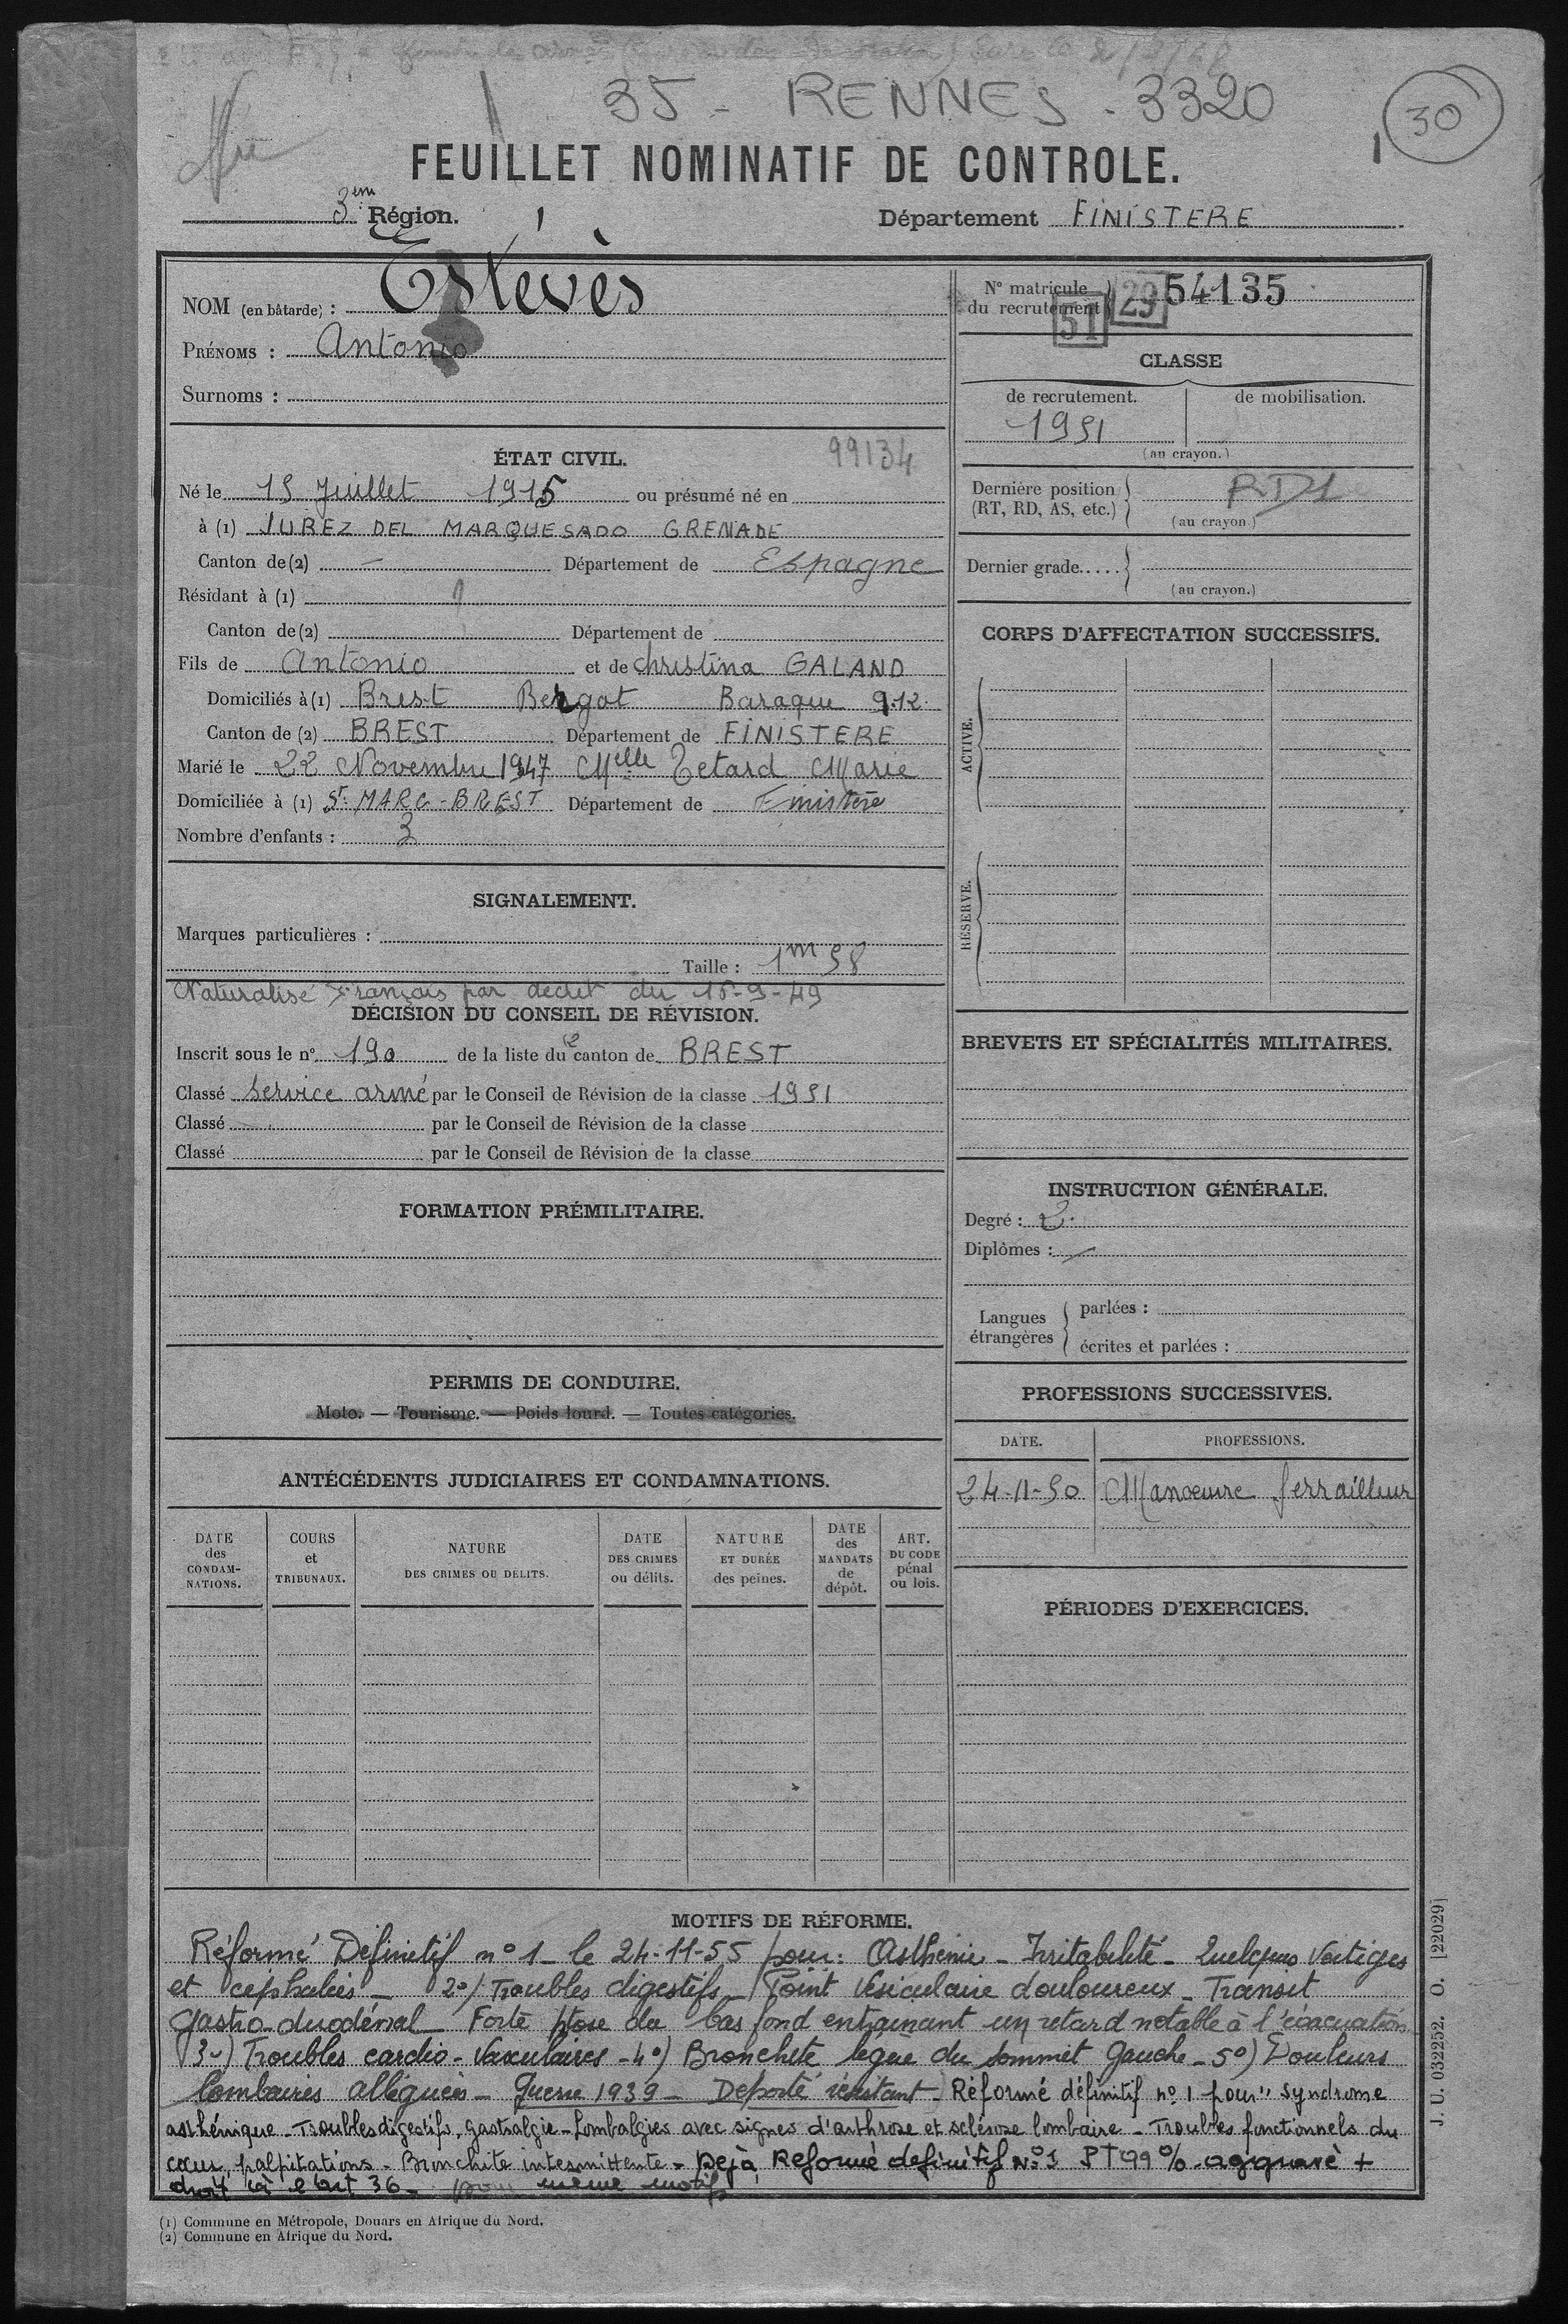 35 - RENNES - 3320
30
FEUILLET NOMINATIF DE CONTROLE.
3em Région.
Département FINISTERE
NOM (en bâtarde) : Estévès
PRÉNOMS : Antonio
Surnoms :
N° matricule du recrutement 51 29 54135
CLASSE
de recrutement. de mobilisation.
1951
(au crayon.)
ÉTAT CIVIL. 99134
Né le 15 Juillet 1915 ou présumé né en
à (1) JUREZ DEL MARQUESADO GRENADE
Canton de (2) — Département de Espagne
Résidant à (1)
Canton de (2) Département de
Fils de Antonio et de christina GALAND
Domiciliés à (1) Brest Bergot Baraque 9.12.
Canton de (2) BREST Département de FINISTERE
Marié le 22 Novembre 1947 Melle Tetard Marie
Domiciliée à (1) St MARC - BREST Département de Finistère
Nombre d'enfants : 3
Dernière position (RT, RD, AS, etc.) RD1
(au crayon.)
Dernier grade.....
(au crayon.)
CORPS D'AFFECTATION SUCCESSIFS.
ACTIVE.
RÉSERVE.
SIGNALEMENT.
Marques particulières :
Taille : 1m58
Naturalisé Français par decret du 15-9-49
DÉCISION DU CONSEIL DE RÉVISION.
Inscrit sous le n° 190 de la liste du 2e canton de BREST
Classé service armé par le Conseil de Révision de la classe 1951
Classé par le Conseil de Révision de la classe
Classé par le Conseil de Révision de la classe
BREVETS ET SPÉCIALITÉS MILITAIRES.
FORMATION PRÉMILITAIRE.
INSTRUCTION GÉNÉRALE.
Degré : 2.
Diplômes : —
Langues étrangères
parlées :
écrites et parlées :
PERMIS DE CONDUIRE.
Moto. — Tourisme. — Poids lourd. — Toutes catégories.
PROFESSIONS SUCCESSIVES.
DATE. PROFESSIONS.
24-11-50 Manoeuvre ferrailleur
ANTÉCÉDENTS JUDICIAIRES ET CONDAMNATIONS.
DATE des CONDAMNATIONS.
COURS et TRIBUNAUX.
NATURE DES CRIMES OU DÉLITS.
DATE DES CRIMES ou délits.
NATURE ET DURÉE des peines.
DATE des MANDATS de dépôt.
ART. DU CODE pénal ou lois.
PÉRIODES D'EXERCICES.
MOTIFS DE RÉFORME.
Réformé Définitif n° 1 - le 24-11-55 pour : Asthénie - Irritabilité - Quelques Vertiges
et céphalées - 2°) Troubles digestifs - Point Vésiculaire douloureux - Transit
Gastro-duodénal - Forte ptose du bas fond entrainant un retard notable à l'évacuation
3°) Troubles cardio-vasculaires - 4°) Bronchite légère du sommet Gauche - 5°) Douleurs
lombaires alléguées - Guerre 1939 - Déporté résistant - Réformé définitif n° 1 pour " syndrome
asthénique - Troubles digestifs, gastralgie - Lombalgies avec signes d'arthrose et sclérose lombaire - Troubles fonctionnels du
cœur, palpitations - Bronchite intermittente - Dejà Reformé definitif N° 1 PT 99 % - aggravé +
droit à l'art 36 - pour même motifs
(1) Commune en Métropole, Douars en Afrique du Nord.
(2) Commune en Afrique du Nord.
J. U. 032252. O. [22029]